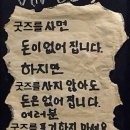 굿즈를 사면
돈이 없어 집니다.
하지만
굿즈를 사지 않아도
돈은 없어 집니다.
여러분
굿즈를 포기하지 마세요